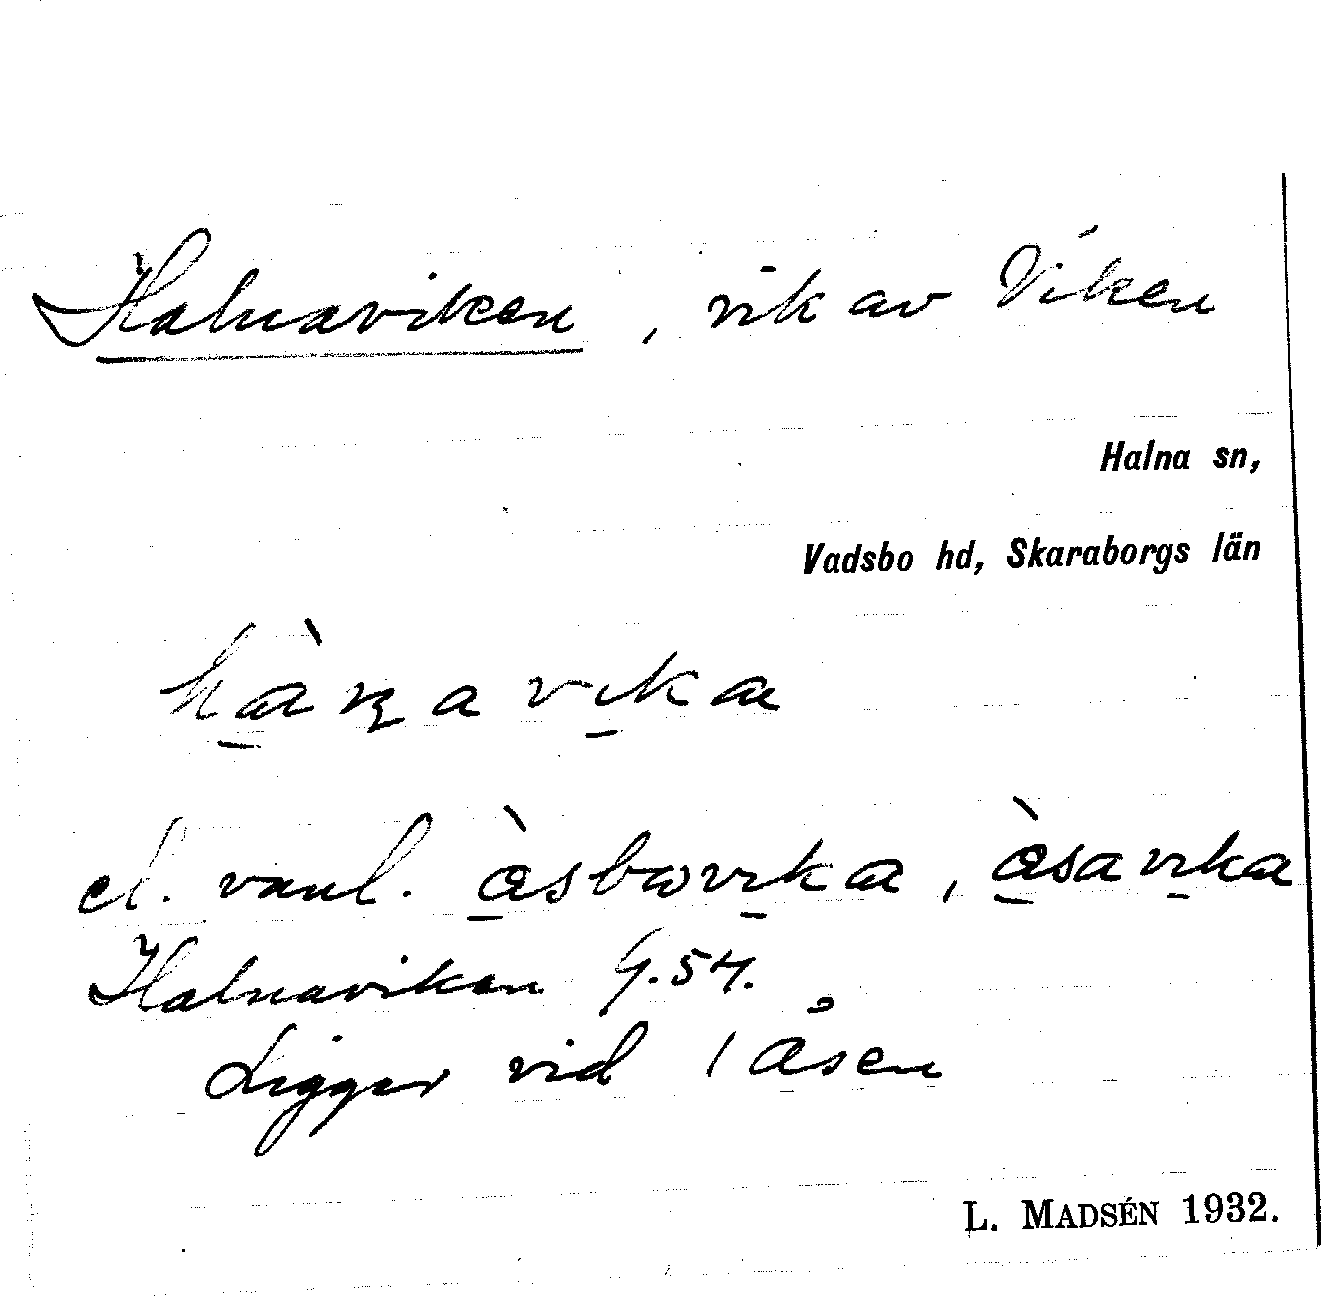 Halnaviken, vik av Viken
Halna sn,
Vadsbo hd, Skaraborgs län
hàɳavika
el. vanl. àsbovika, àsavika
Halnaviken G. 54.
Ligger vid 1 Åsen
L. MADSÉN 1932.